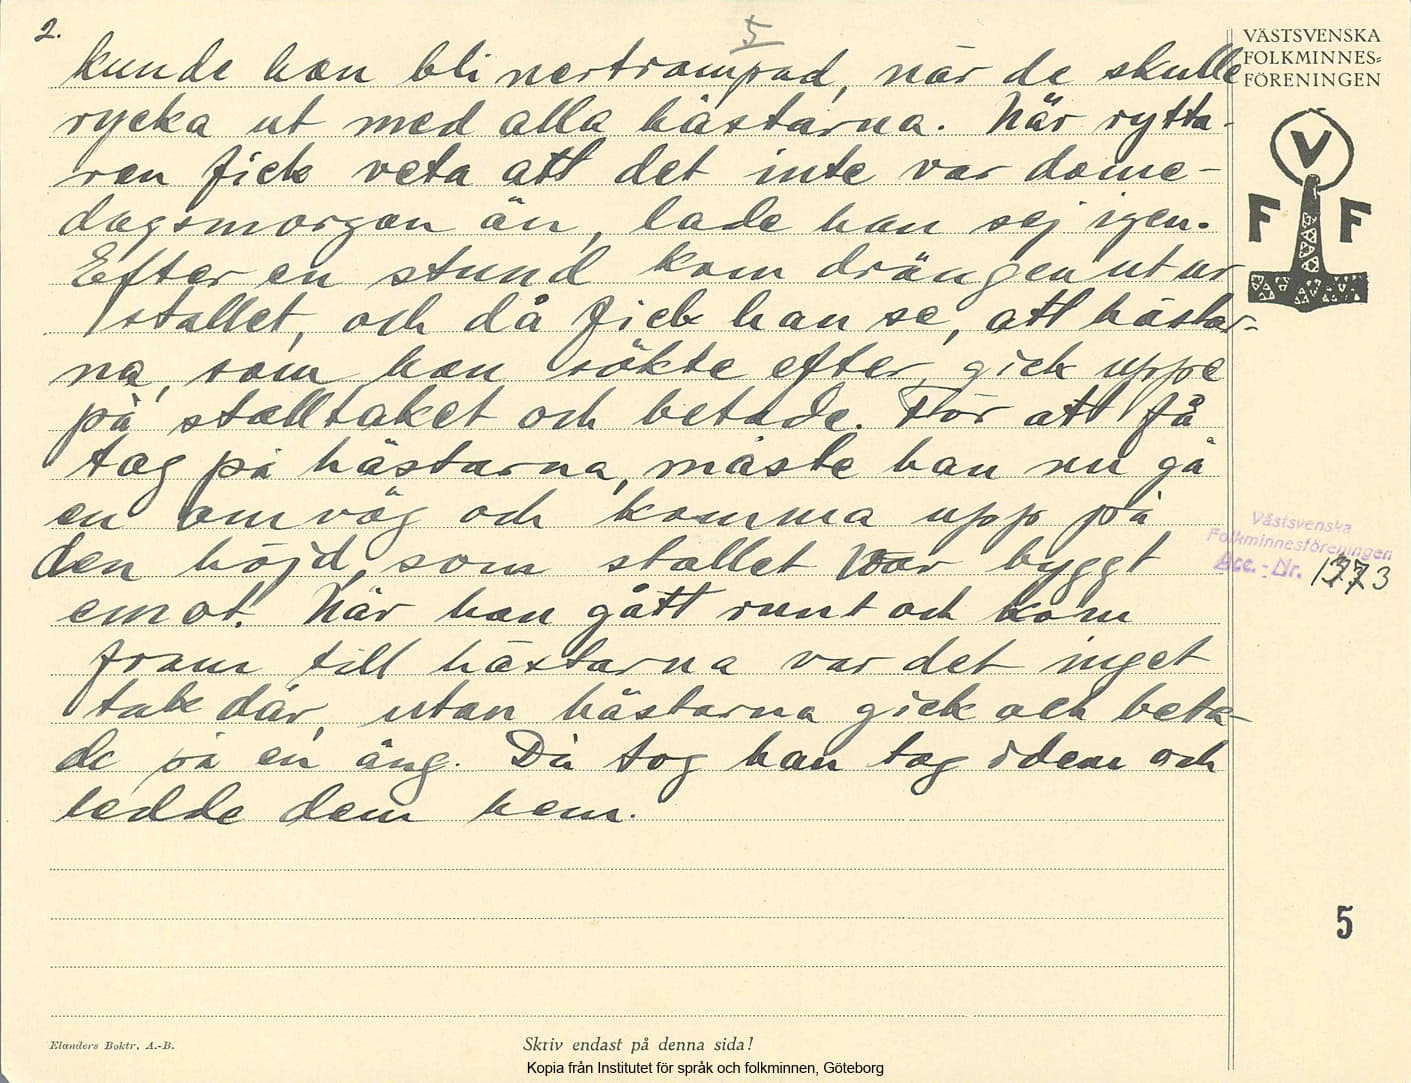 2.
5
kunde han bli nertrampad, när de skulle
rycka ut med alla hästarna. När rytta-
ren fick veta att det inte var dome-
dagsmorgon än, lade han sej igen.
Efter en stund kom drängen ut ur
stallet, och då fick han se, att hästar-
na, som han sökte efter, gick uppe
på stalltaket och betade. För att få
tag på hästarna, måste han nu gå
en omväg och komma upp på
den höjd, som stallet var byggt
emot. När han gått runt och kom
fram till hästarna var det inget
tak där, utan hästarna gick och beta-
de på en äng. Då tog han tag i dem och
ledde dem hem.
VÄSTSVENSKA
FOLKMINNES-
FÖRENINGEN
V
F F
Västsvenska
Folkminnesföreningen
Acc. - Nr. 1373
5
Elanders Boktr. A.-B.
Skriv endast på denna sida!
Kopia från Institutet för språk och folkminnen, Göteborg